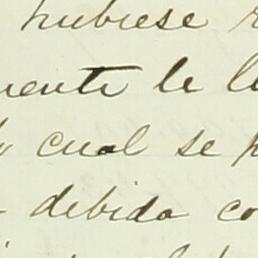 hubiese
uente le
cual se
debida co